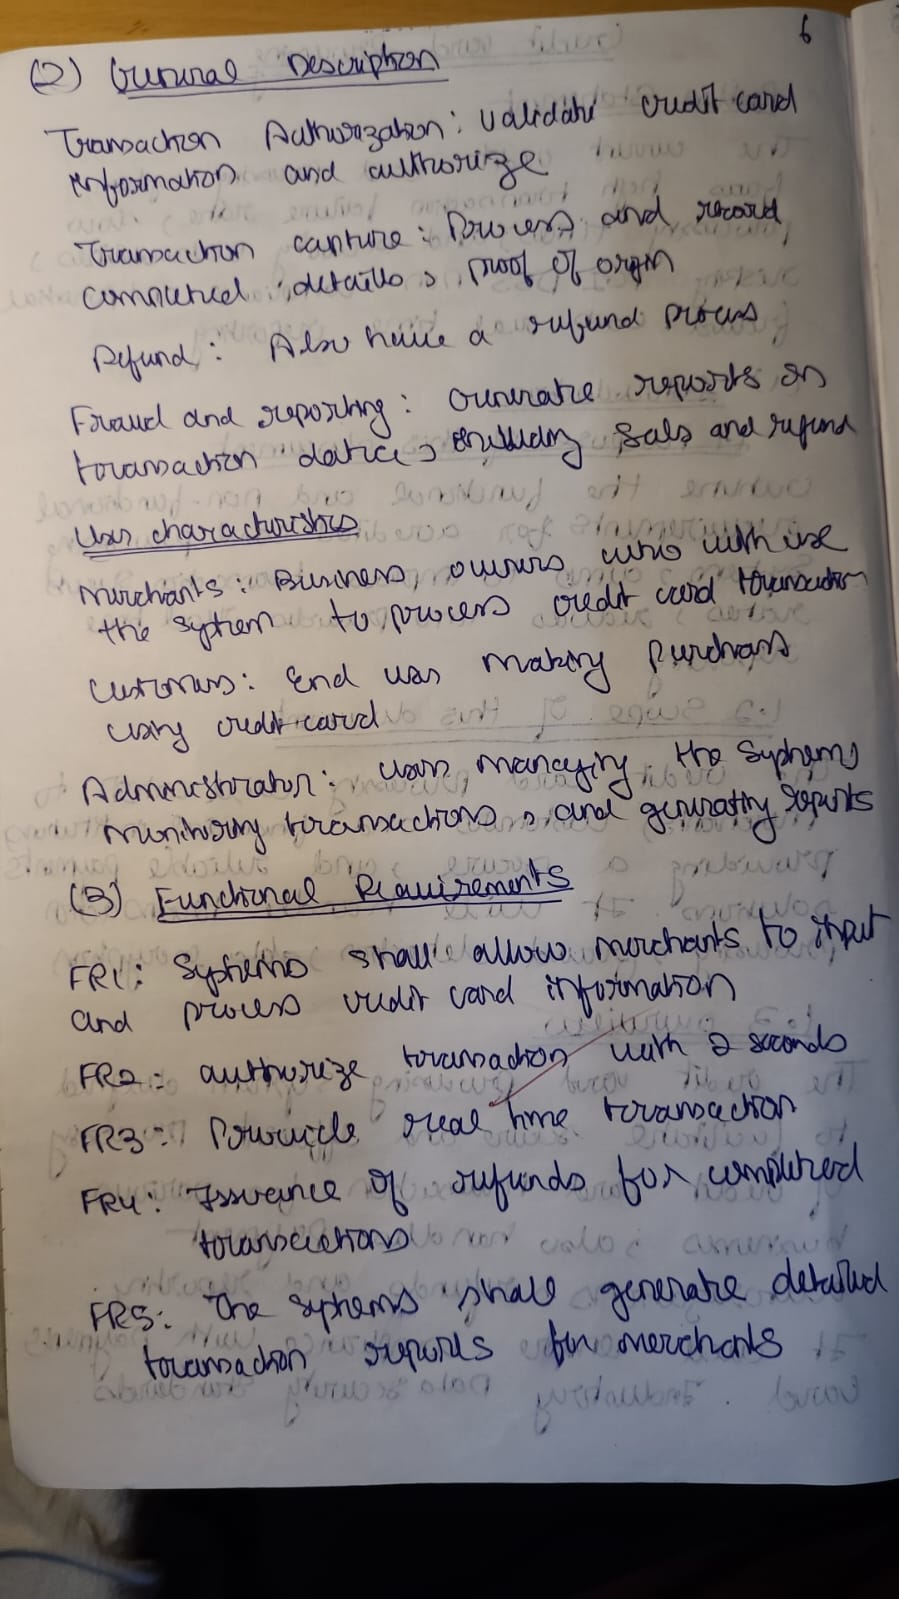 6
(2) General Description
Transaction Authorization: validate credit card
information and authorize
Transaction capture: Process and record
completed details, proof of origin
Refund: Also have a refund process
Fraud and reporting: Generate reports on
transaction data, including sales and refund
User characteristics
Merchants: Business owners who with use
the system to process credit card transaction
Customers: End user making purchases
using credit card
Administrator: users managing the systems
monitoring transactions, and generating reports
(3) Functional Requirements
FR1: Systems shall allow merchants to input
and process credit card information
FR2: authorize transaction with 2 seconds
FR3: Provide real time transaction
FR4: Issuance of refunds for completed
transactions
FR5: The systems shall generate detailed
transaction reports for merchants